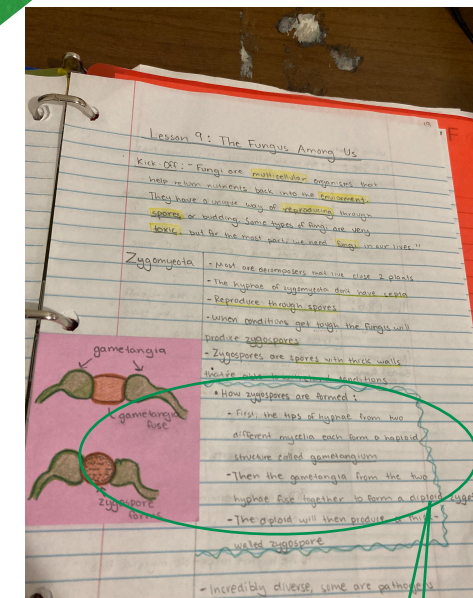 19
Lesson 9: The Fungus Among Us
Kick-Off: - Fungi are multicellular organisms that
help return nutrients back into the
They have a unique way of reproducing through
spores or budding. Some types of fungi are very
toxic, but for the most part, we need fungi in our lives."
Zygomycota
- Most are decomposers that live close 2 plants
- The hyphae of zygomycota don't have septa
- Reproduce through spores
- When conditions get tough the fungus will
produce zygospores
- Zygospores are spores with thick walls
that're able conditions
• How zygospores are formed:
- First, the tips of hyphae from two
different mycelia each form a haploid
structure called gametangium
- Then the gametangia from the two
hyphae fuse together to form a diploid
- The diploid will then produce a thick-
walled zygospore
- Incredibly diverse, some are pathogens
gametangia
gametangia
fuse
zygospore
forms
F